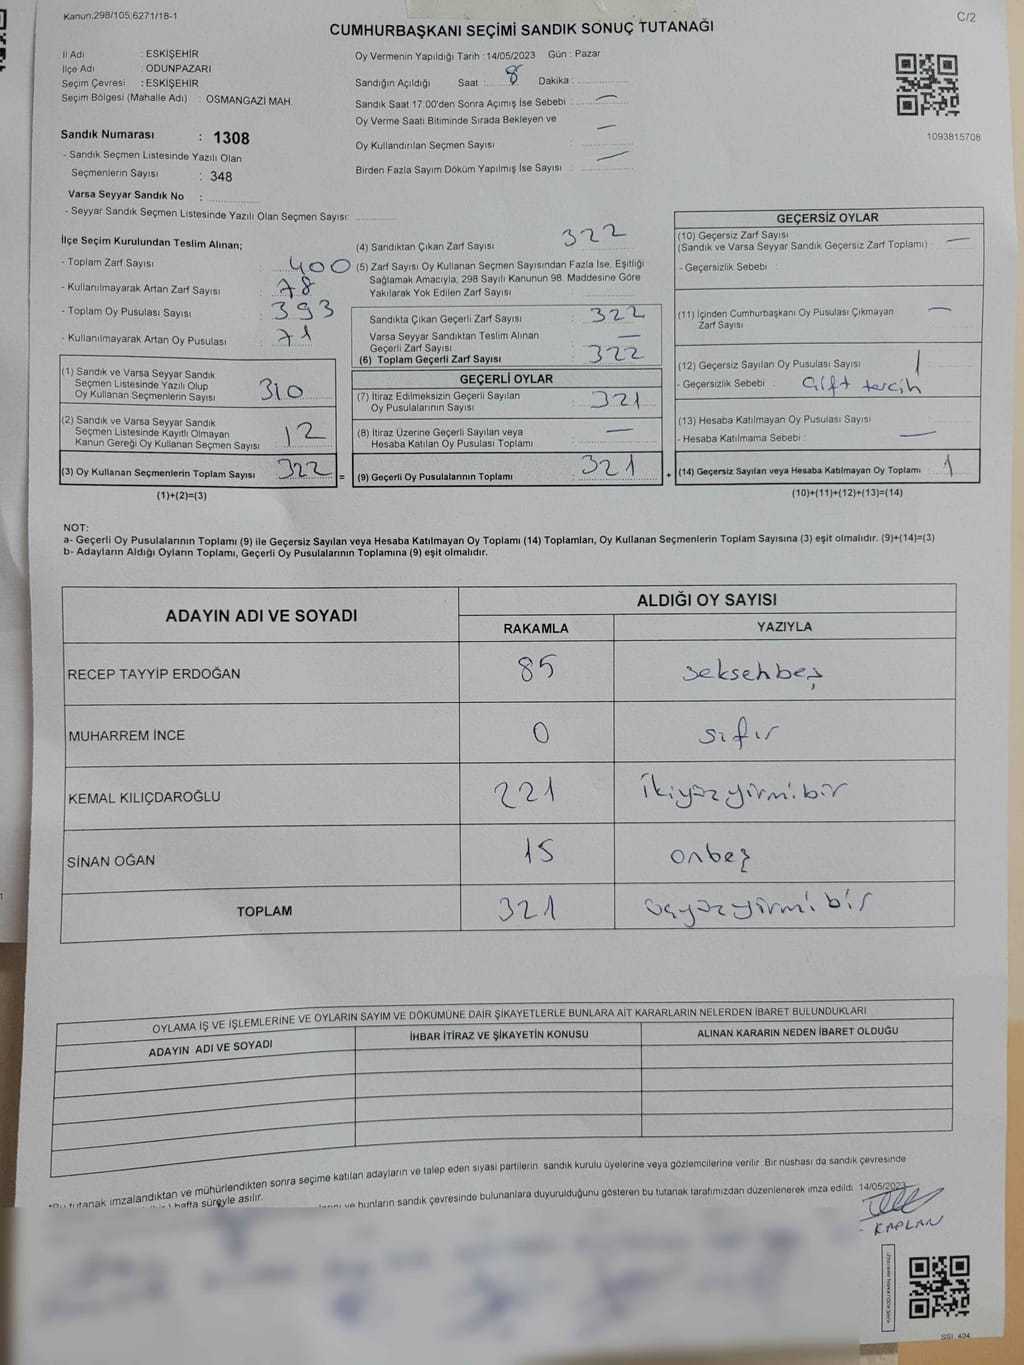 Kanun:298/105;6271/18-1
C/2
CUMHURBAŞKANI SEÇİMİ SANDIK SONUÇ TUTANAĞI
İl Adı : ESKİŞEHİR
İlçe Adı : ODUNPAZARI
Seçim Çevresi : ESKİŞEHİR
Seçim Bölgesi (Mahalle Adı) : OSMANGAZİ MAH.
Oy Vermenin Yapıldığı Tarih : 14/05/2023 Gün : Pazar
Sandığın Açıldığı Saat : 8 Dakika :
Sandık Saat 17:00'den Sonra Açımış İse Sebebi : —
Oy Verme Saati Bitiminde Sırada Bekleyen ve
Oy Kullandırılan Seçmen Sayısı : —
Birden Fazla Sayım Döküm Yapılmış İse Sayısı : —
1093815708
Sandık Numarası : 1308
- Sandık Seçmen Listesinde Yazılı Olan
Seçmenlerin Sayısı : 348
Varsa Seyyar Sandık No :
- Seyyar Sandık Seçmen Listesinde Yazılı Olan Seçmen Sayısı:
İlçe Seçim Kurulundan Teslim Alınan;
- Toplam Zarf Sayısı : 400
- Kullanılmayarak Artan Zarf Sayısı : 78
- Toplam Oy Pusulası Sayısı : 393
- Kullanılmayarak Artan Oy Pusulası : 71
(1) Sandık ve Varsa Seyyar Sandık
Seçmen Listesinde Yazılı Olup
Oy Kullanan Seçmenlerin Sayısı 310
(2) Sandık ve Varsa Seyyar Sandık
Seçmen Listesinde Kayıtlı Olmayan
Kanun Gereği Oy Kullanan Seçmen Sayısı : 12
(3) Oy Kullanan Seçmenlerin Toplam Sayısı 322 =
(1)+(2)=(3)
(4) Sandıktan Çıkan Zarf Sayısı : 322
(5) Zarf Sayısı Oy Kullanan Seçmen Sayısından Fazla İse, Eşitliği
Sağlamak Amacıyla; 298 Sayılı Kanunun 98. Maddesine Göre
Yakılarak Yok Edilen Zarf Sayısı :
Sandıkta Çıkan Geçerli Zarf Sayısı : 322
Varsa Seyyar Sandıktan Teslim Alınan
Geçerli Zarf Sayısı : —
(6) Toplam Geçerli Zarf Sayısı : 322
GEÇERLİ OYLAR
(7) İtiraz Edilmeksizin Geçerli Sayılan
Oy Pusulalarının Sayısı : 321
(8) İtiraz Üzerine Geçerli Sayılan veya
Hesaba Katılan Oy Pusulası Toplamı : —
(9) Geçerli Oy Pusulalarının Toplamı : 321 +
GEÇERSİZ OYLAR
(10) Geçersiz Zarf Sayısı
(Sandık ve Varsa Seyyar Sandık Geçersiz Zarf Toplamı) : —
- Geçersizlik Sebebi :
(11) İçinden Cumhurbaşkanı Oy Pusulası Çıkmayan
Zarf Sayısı : —
(12) Geçersiz Sayılan Oy Pusulası Sayısı : 1
- Geçersizlik Sebebi : Çift tercih
(13) Hesaba Katılmayan Oy Pusulası Sayısı :
- Hesaba Katılmama Sebebi : —
(14) Geçersiz Sayılan veya Hesaba Katılmayan Oy Toplamı : 1
(10)+(11)+(12)+(13)=(14)
NOT:
a- Geçerli Oy Pusulalarının Toplamı (9) ile Geçersiz Sayılan veya Hesaba Katılmayan Oy Toplamı (14) Toplamları, Oy Kullanan Seçmenlerin Toplam Sayısına (3) eşit olmalıdır. (9)+(14)=(3)
b- Adayların Aldığı Oyların Toplamı, Geçerli Oy Pusulalarının Toplamına (9) eşit olmalıdır.
ADAYIN ADI VE SOYADI
ALDIĞI OY SAYISI
RAKAMLA YAZIYLA
RECEP TAYYİP ERDOĞAN 85 seksenbeş
MUHARREM İNCE 0 sıfır
KEMAL KILIÇDAROĞLU 221 İkiyüzyirmibir
SİNAN OĞAN 15 onbeş
TOPLAM 321 üçyüzyirmibir
OYLAMA İŞ VE İŞLEMLERİNE VE OYLARIN SAYIM VE DÖKÜMÜNE DAİR ŞİKAYETLERLE BUNLARA AİT KARARLARIN NELERDEN İBARET BULUNDUKLARI
ADAYIN ADI VE SOYADI İHBAR İTİRAZ VE ŞİKAYETİN KONUSU ALINAN KARARIN NEDEN İBARET OLDUĞU
tutanak imzalandıktan ve mühürlendikten sonra seçime katılan adayların ve talep eden siyasi partilerin sandık kurulu üyelerine veya gözlemcilerine verilir. Bir nüshası da sandık çevresinde
hafta süreyle asılır.
ve bunların sandık çevresinde bulunanlara duyurulduğunu gösteren bu tutanak tarafımızdan düzenlenerek imza edildi. 14/05/2023
KAPLAN
SSI: 404